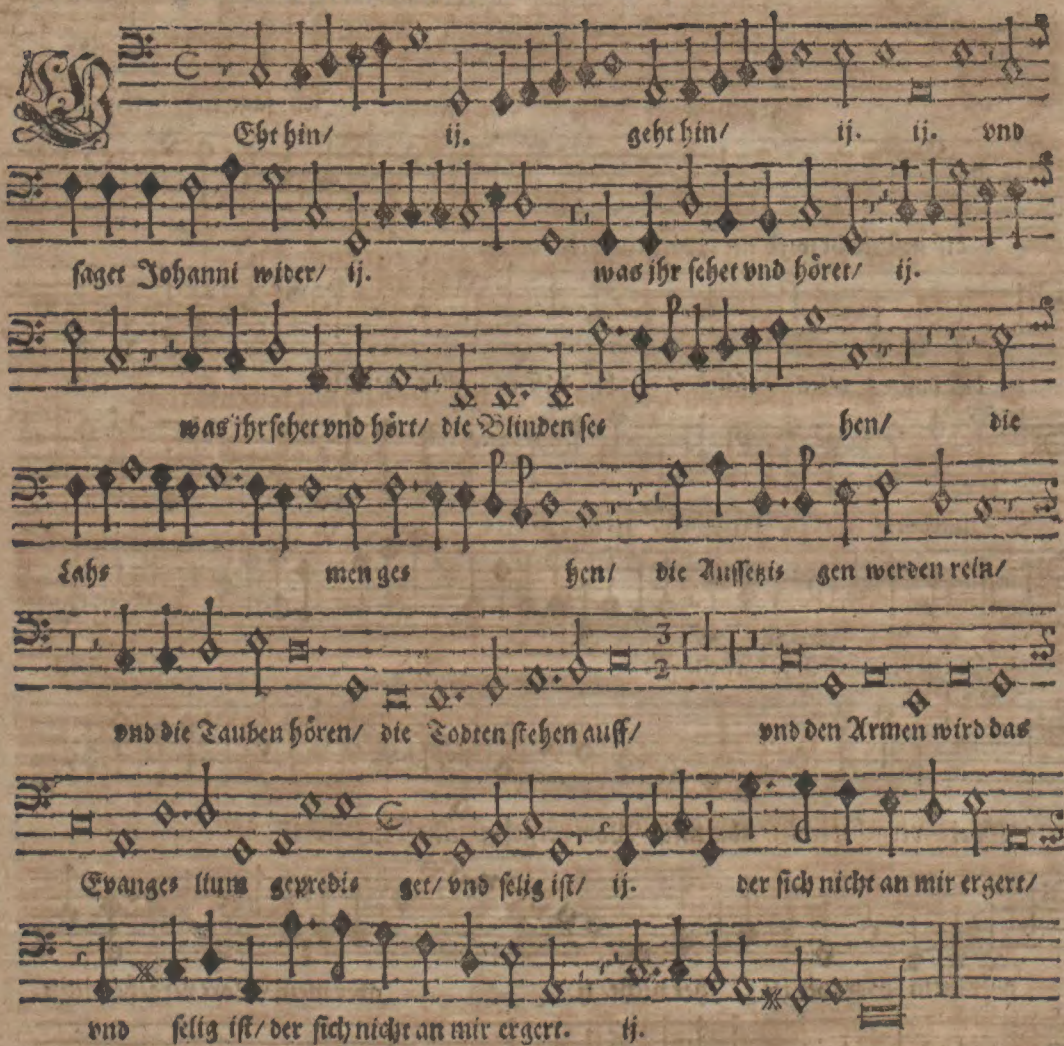 GEht hin/ ij. geht hin/ ij. ij. vnd
saget Johanni wider/ ij. was jhr sehet vnd höret/ ij.
was jhr sehet vnd hört/ die Blinden ses hen/ die
Lahs men ges hen/ die Aussetzis gen werden rein/
3
2
vnd die Tauben hören/ die Todten stehen auff/ vnd den Armen wird das
Evanges lium gepredis get/ vnd selig ist/ ij. der sich nicht an mir ergert/
vnd selig ist/ der sich nicht an mir ergert. ij.